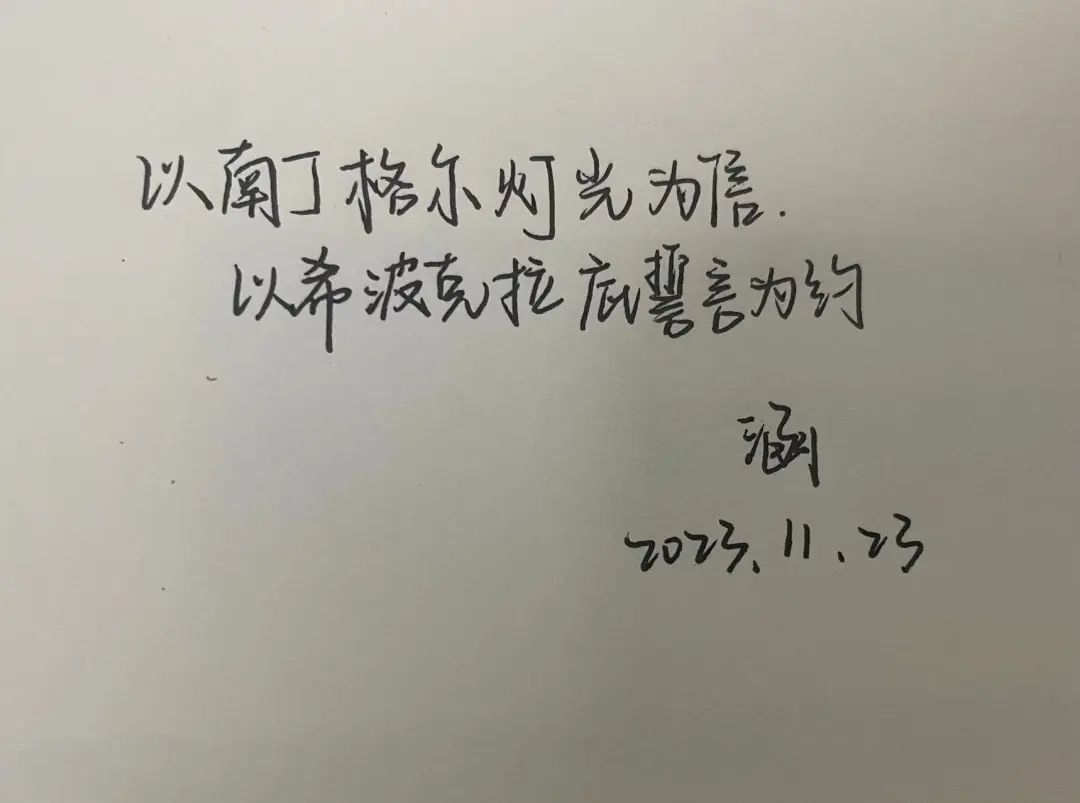 以南丁格尔灯光为信.
以希波克拉底誓言为约
涵
2023.11.23